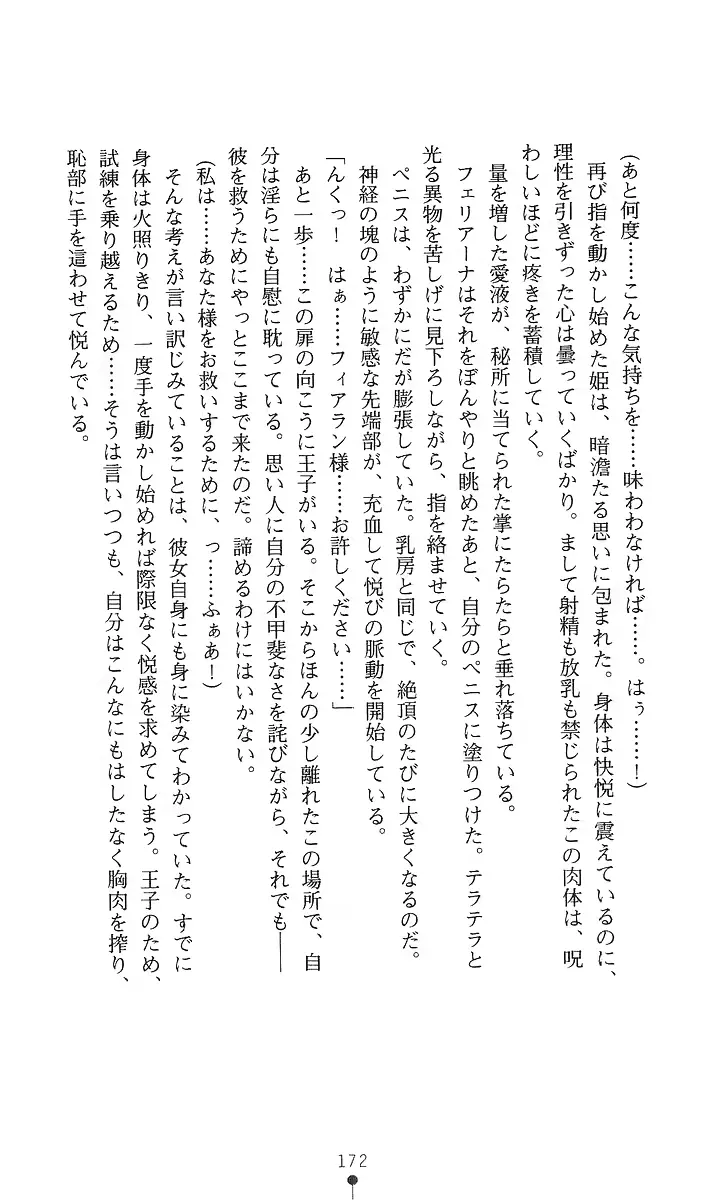 (あと何度……こんな気持ちを……味わわなければ……。はぅ……！)
再び指を動かし始めた姫は、暗澹たる思いに包まれた。身体は快悦に震えているのに、
理性を引きずった心は曇っていくばかり。まして射精も放乳も禁じられたこの肉体は、呪
わしいほどに疼きを蓄積していく。
量を増した愛液が、秘所に当てられた掌にたらたらと垂れ落ちている。
フェリアーナはそれをぼんやりと眺めたあと、自分のペニスに塗りつけた。テラテラと
光る異物を苦しげに見下ろしながら、指を絡ませていく。
ペニスは、わずかにだが膨張していた。乳房と同じで、絶頂のたびに大きくなるのだ。
神経の塊のように敏感な先端部が、充血して悦びの脈動を開始している。
「んくっ！　はぁ……フィアラン様……お許しください……」
あと一歩……この扉の向こうに王子がいる。そこからほんの少し離れたこの場所で、自
分は淫らにも自慰に耽っている。思い人に自分の不甲斐なさを詫びながら、それでも――
彼を救うためにやっとここまで来たのだ。諦めるわけにはいかない。
(私は……あなた様をお救いするために、っ……ふぁあ！)
そんな考えが言い訳じみていることは、彼女自身にも身に染みてわかっていた。すでに
身体は火照りきり、一度手を動かし始めれば際限なく悦感を求めてしまう。王子のため、
試練を乗り越えるため……そうは言いつつも、自分はこんなにもはしたなく胸肉を搾り、
恥部に手を這わせて悦んでいる。
172